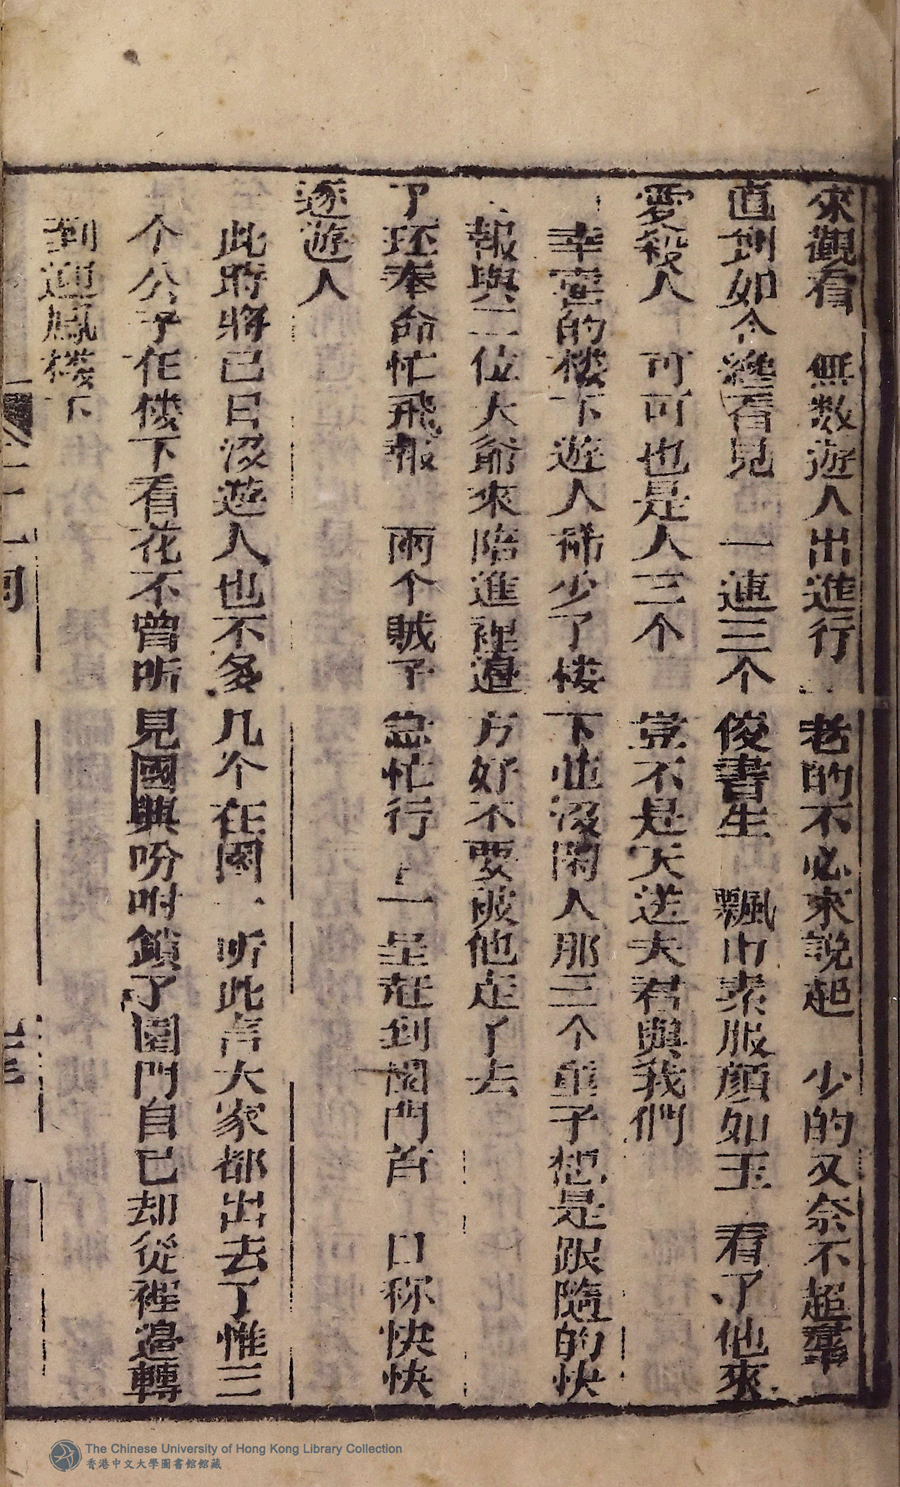 來觀看　無数遊人出進行　老的不必來說起　少的又奈不超羣
直到如今纔看見　一連三个俊書生　飄巾素服顔如玉　看了他來
愛殺人　可可也是人三个　豈不是天送夫君與我們
幸喜的楼下遊人稀少了楼下也沒閑人那三个童子想是跟隨的快
報與二位大爺來陪進裡邉方好不要被他走了去
了环奉命忙飛報　兩个賊子急忙行　上一呈在到園門首　口称快快
逐遊人
此時將已日沒遊人也不多几个在園一听此言大家都出去了惟三
个公子在楼下看花不曾听見國興吩咐鎖了園門自己却從裡邉轉
到迎鳳楼下
The Chinese University of Hong Kong Library Collection
香港中文大學圖書館館藏